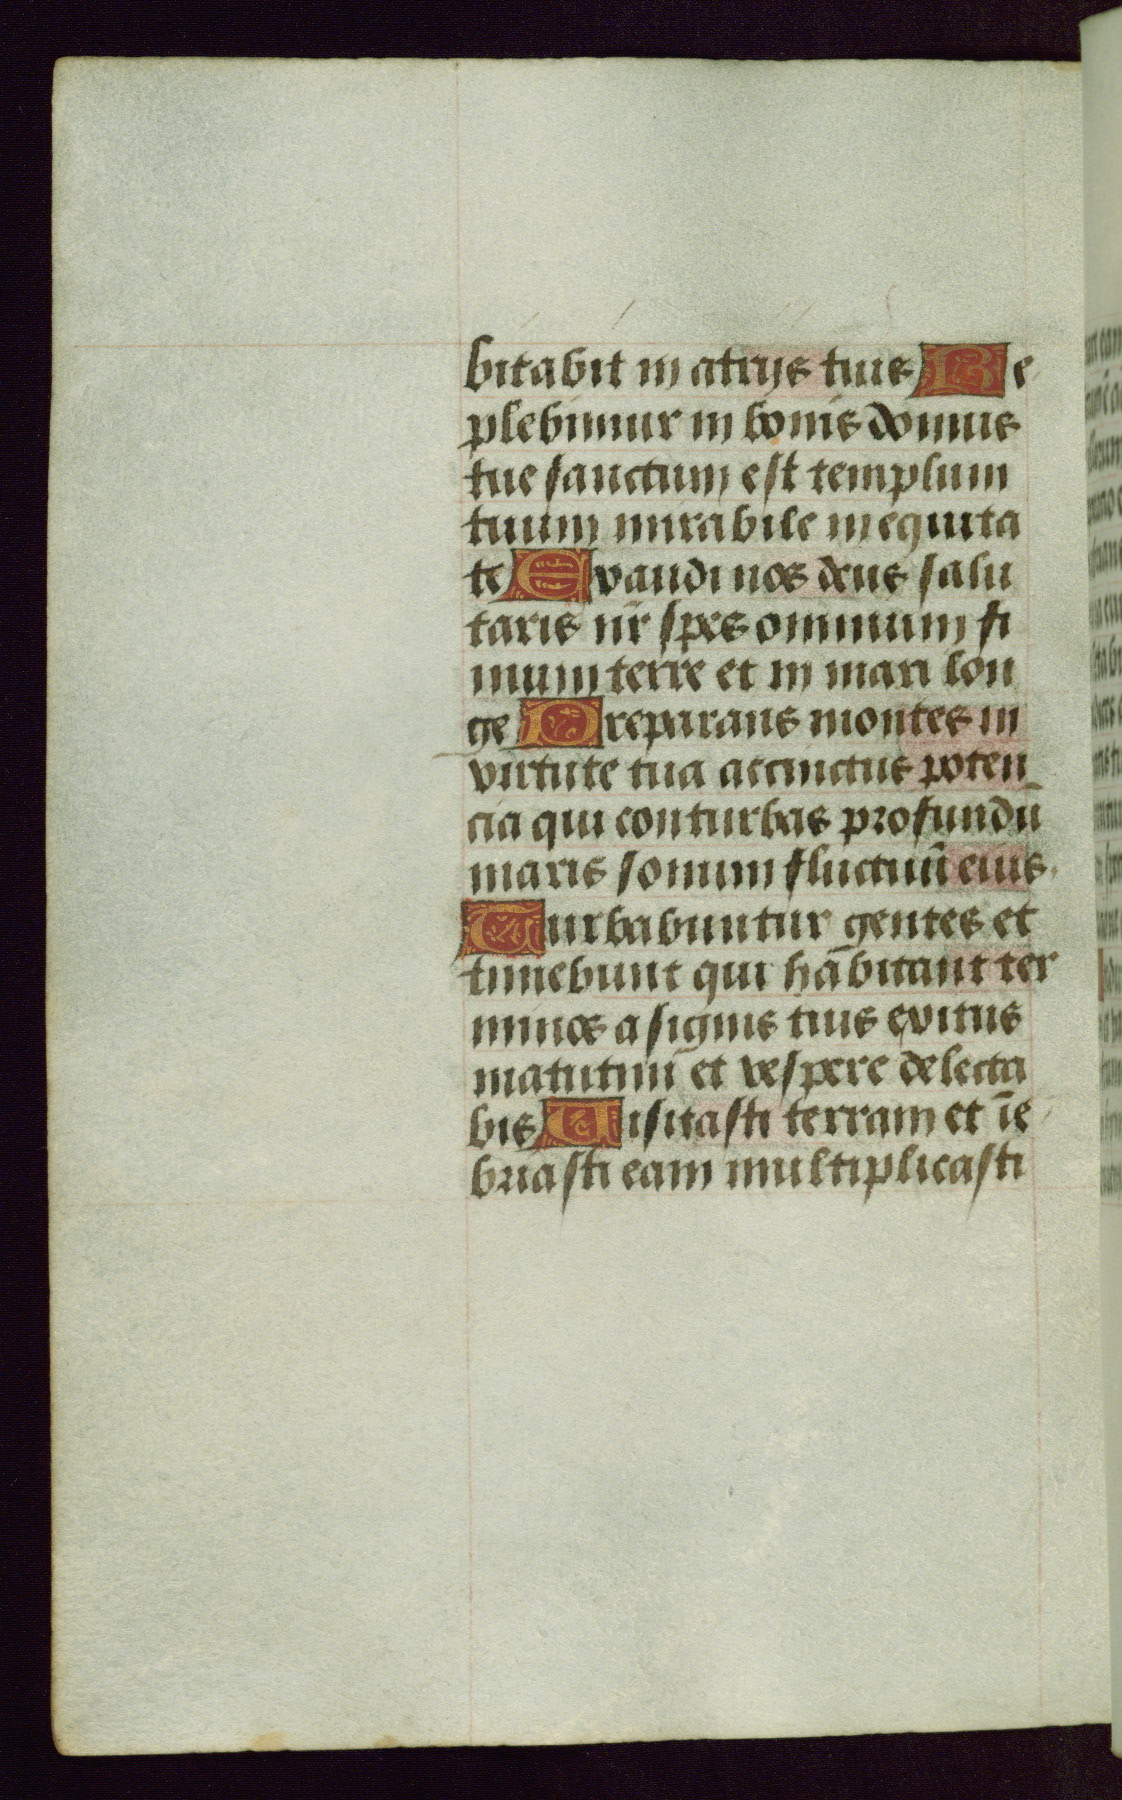 bitabit in atrijs tuis Re
plebimur in bonis domus
tue sanctum est templum
tuum mirabile in equita
te Exaudi nos deus salu
taris nr̄ spes omnium fi
nium terre et in mari lon
ge Preparans montes in
virtute tua accinctus poten
cia qui conturbas profundū
maris sonum fluctuū eius.
Turbabuntur gentes et
timebunt qui hābitant ter
minos a signis tuis exitus
matutinū et vespere delecta
bis Uisitasti terram et īe
briasti eam multiplicasti